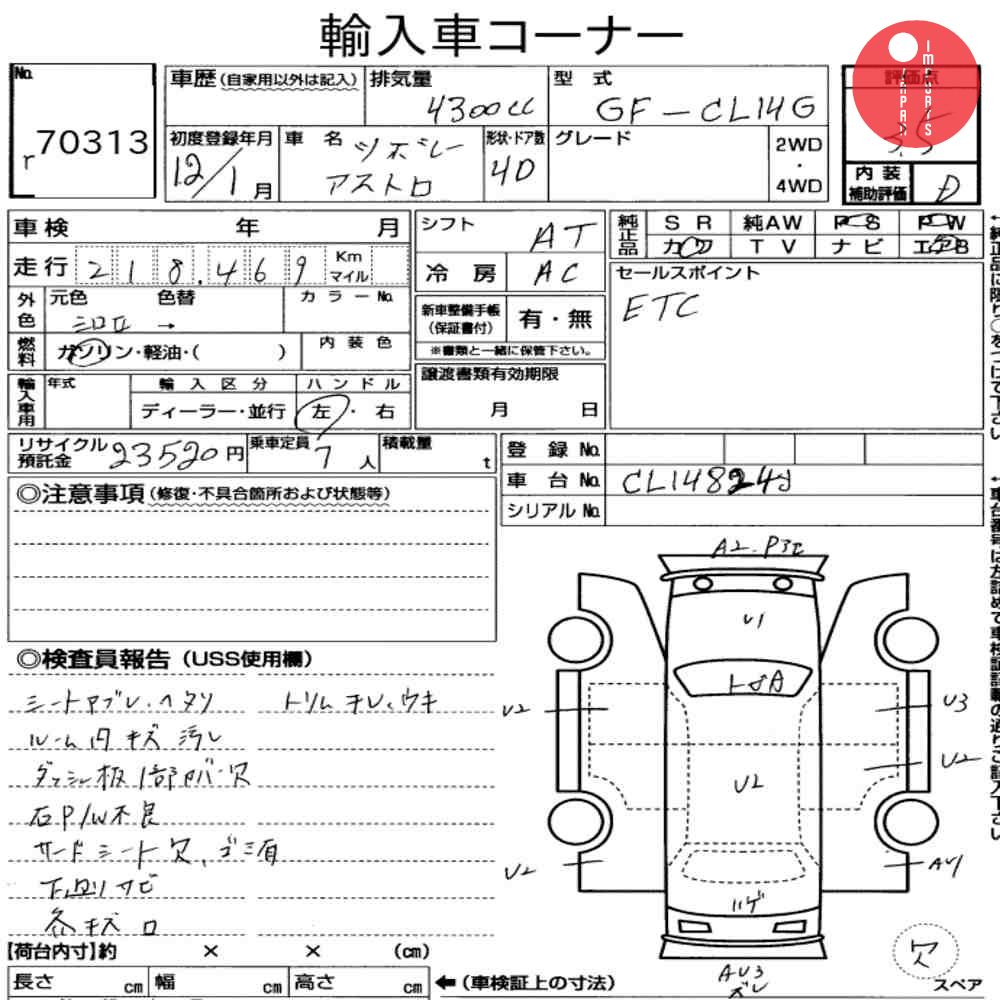 輸入車コーナー
JAPAN
IMPORTS
No.
r70313
車歴(自家用以外は記入)
排気量
4300cc
型式
GF-CL14G
評価点
3.5
初度登録年月
12/1月
車名
シボレー
アストロ
形状・ドア数
4D
グレード
2WD
・
4WD
内装
補助評価
D
車検 年 月
走行 218,469 Km
マイル
シフト
AT
冷房
AC
純正品
SR 純AW PS PW
カワ TV ナビ エアB
セールスポイント
ETC
外色
元色 色替 カラーNo.
シロII →
新車整備手帳
(保証書付)
有・無
※書類と一緒に保管下さい。
燃料
ガソリン・軽油・( )
内装色
譲渡書類有効期限
月 日
輸入車用
年式
輸入区分
ハンドル
ディーラー・並行
左・右
リサイクル
預託金
23520円
乗車定員
7人
積載量
t
登録No.
車台No.
CL148245
シリアルNo.
◎注意事項(修復・不具合箇所および状態等)
◎検査員報告(USS使用欄)
シートヤブレ、ヘタリ
トリム キレ、ウキ
ルーム内 キズ 汚レ
ダッシュ板1部カバー欠
右P/W不良
サードシート欠、ゴミ有
下回りサビ
各キズ
A2
U1
U2
U3
U2
U2
U2
AU1
ハゲ
AU3
ズレ
欠
スペア
【荷台内寸】約 × × (cm)
長さ cm 幅 cm 高さ cm
←(車検証上の寸法)
↑純正品に限り○をつけて下さい
↑車台番号は左詰めで車検証記載の通りご記入下さい